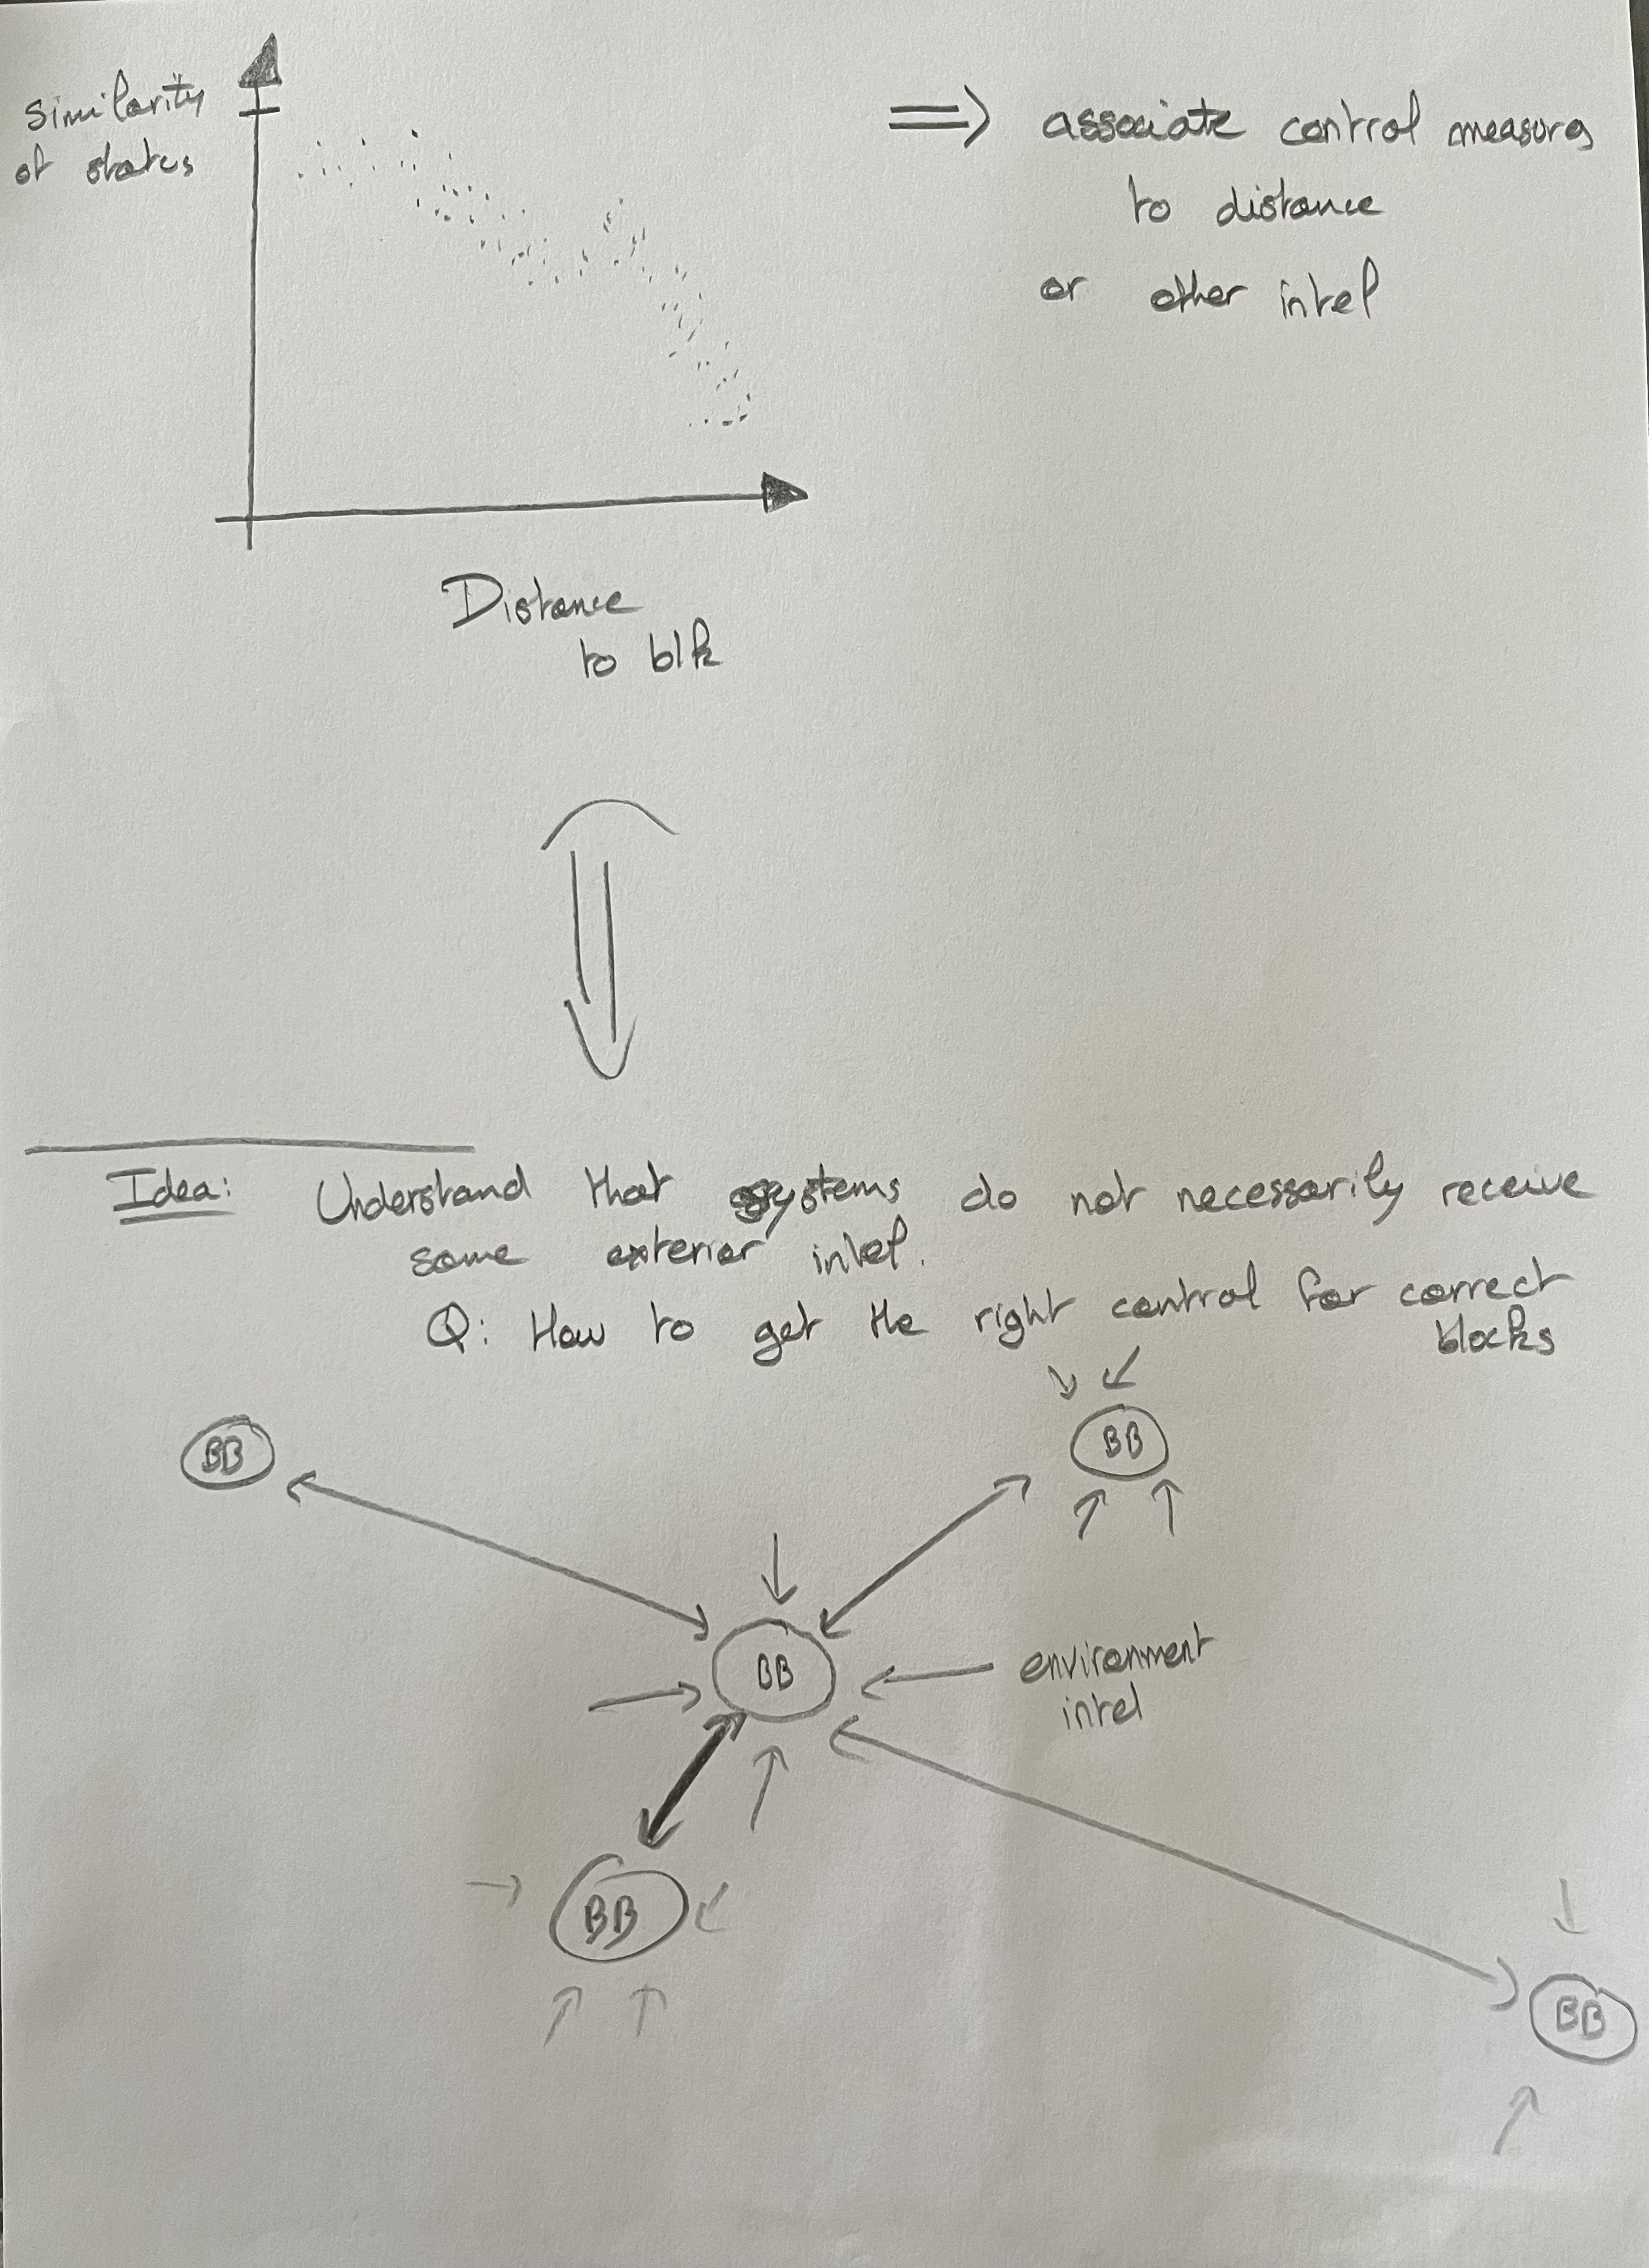 Similarity
of states
=> associate control measures
to distance
or other intel
Distance
to blk
Idea: Understand that systems do not necessarily receive
same exterior intel.
Q: How to get the right control for correct
blocks
BB
BB
BB
environment
intel
BB
BB